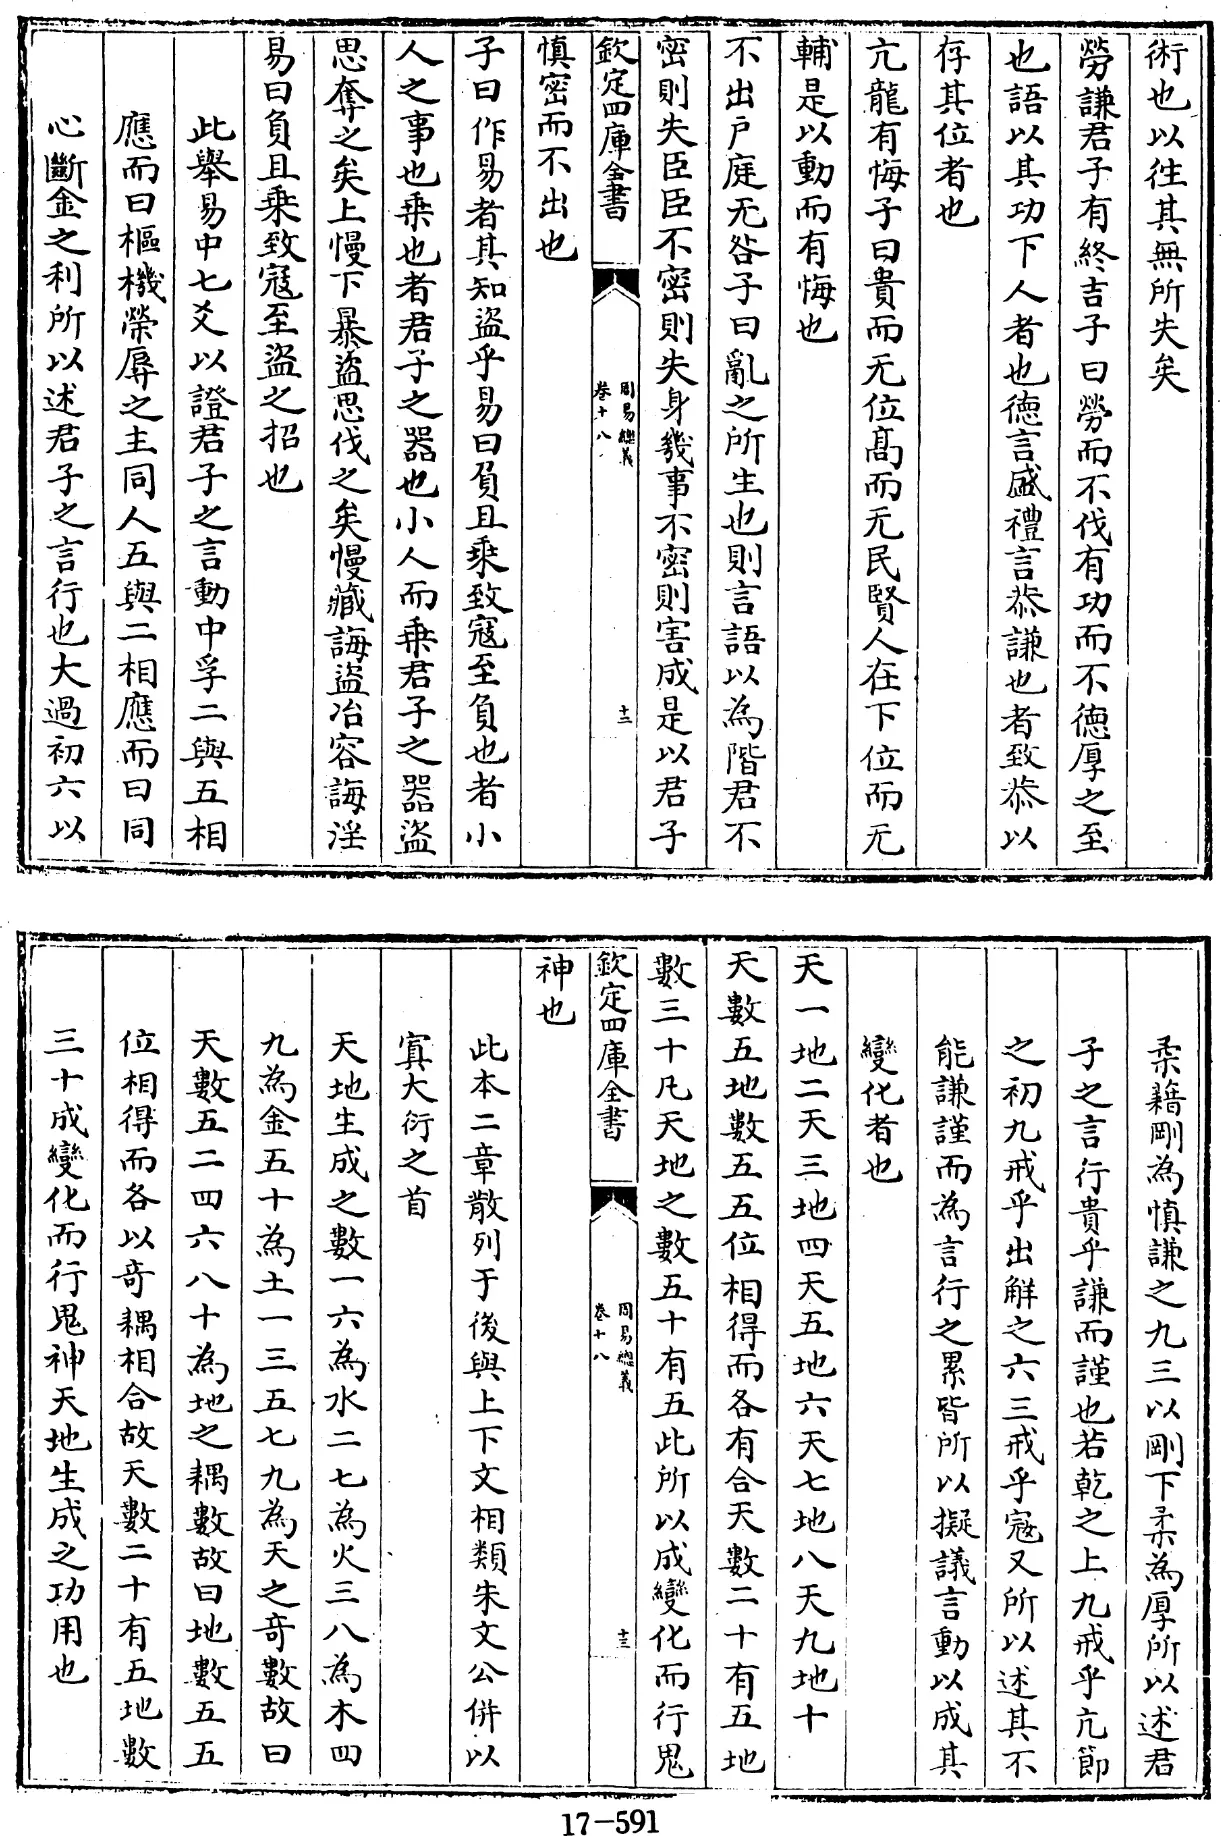 術也以往其無所失矣
勞謙君子有終吉子曰勞而不伐有功而不徳厚之至
也語以其功下人者也徳言盛禮言恭謙也者致恭以
存其位者也
亢龍有悔子曰貴而无位髙而无民賢人在下位而无
輔是以動而有悔也
不出戶庭无咎子曰亂之所生也則言語以為階君不
密則失臣臣不密則失身幾事不密則害成是以君子
欽定四庫全書
周易總義
卷十八
十二
慎密而不出也
子曰作易者其知盜乎易曰負且乘致寇至負也者小
人之事也乗也者君子之器也小人而乗君子之器盜
思奪之矣上慢下暴盜思伐之矣慢藏誨盜冶容誨淫
易曰負且乗致寇至盜之招也
此舉易中七爻以證君子之言動中孚二與五相
應而曰樞機榮辱之主同人五與二相應而曰同
心斷金之利所以述君子之言行也大過初六以
柔藉剛為慎謙之九三以剛下柔為厚所以述君
子之言行貴乎謙而謹也若乾之上九戒乎亢節
之初九戒乎出解之六三戒乎寇又所以述其不
能謙謹而為言行之累皆所以擬議言動以成其
變化者也
天一地二天三地四天五地六天七地八天九地十
天數五地數五五位相得而各有合天數二十有五地
數三十凡天地之數五十有五此所以成變化而行鬼
欽定四庫全書
周易總義
卷十八
十三
神也
此本二章散列于後與上下文相類朱文公併以
寘大衍之首
天地生成之數一六為水二七為火三八為木四
九為金五十為土一三五七九為天之奇數故曰
天數五二四六八十為地之耦數故曰地數五五
位相得而各以奇耦相合故天數二十有五地數
三十成變化而行鬼神天地生成之功用也
17-591